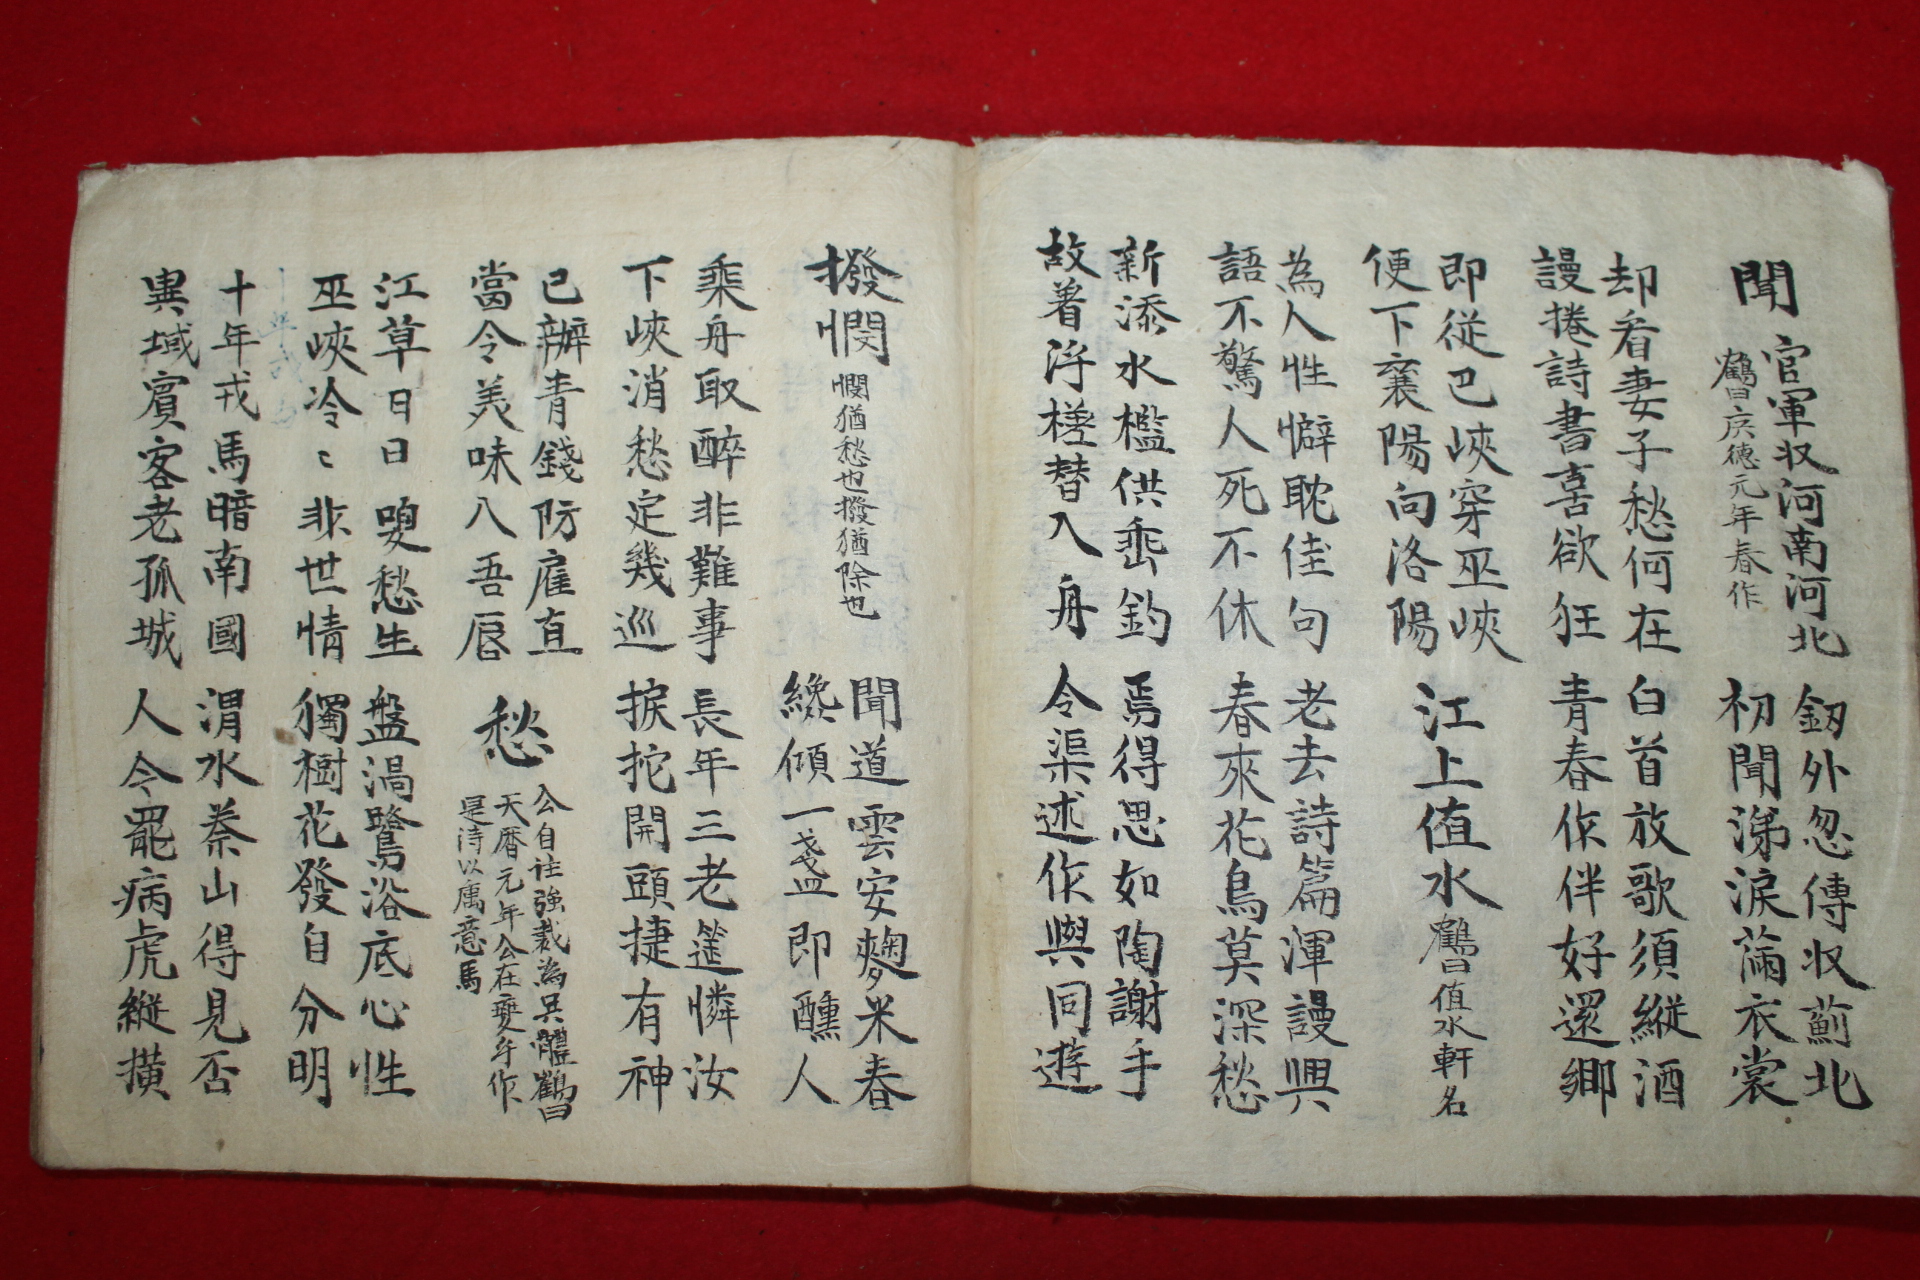 聞官軍収河南河北
鶴曰広德元年春作
釼外忽傳収薊北
初聞涕淚滿衣裳
却看妻子愁何在
謾捲詩書喜欲狂
白首放歌須縱酒
青春作伴好還鄉
即從巴峽穿巫峽
便下襄陽向洛陽
江上值水
鶴曰值水軒名
為人性僻耽佳句
語不驚人死不休
老去詩篇渾謾興
春來花鳥莫深愁
新添水檻供垂釣
故着浮槎替入舟
焉得思如陶謝手
令渠述作與同遊
撥憫
憫猶愁也撥猶除也
聞道雲安麴米春
纔傾一盞即醺人
乘舟取醉非難事
下峽消愁定幾巡
長年三老遙憐汝
捩柁開頭捷有神
已辦青錢防雇直
當令美味入吾唇
愁
公自注強裁為吳體鶴曰
天曆元年公在夔年作
是詩以寓意焉
江草日日喚愁生
巫峽冷〻非世情
盤渦鷺浴底心性
獨樹花發自分明
十年戎馬暗南國
異域賓客老孤城
渭水秦山得見否
人今罷病虎縱橫